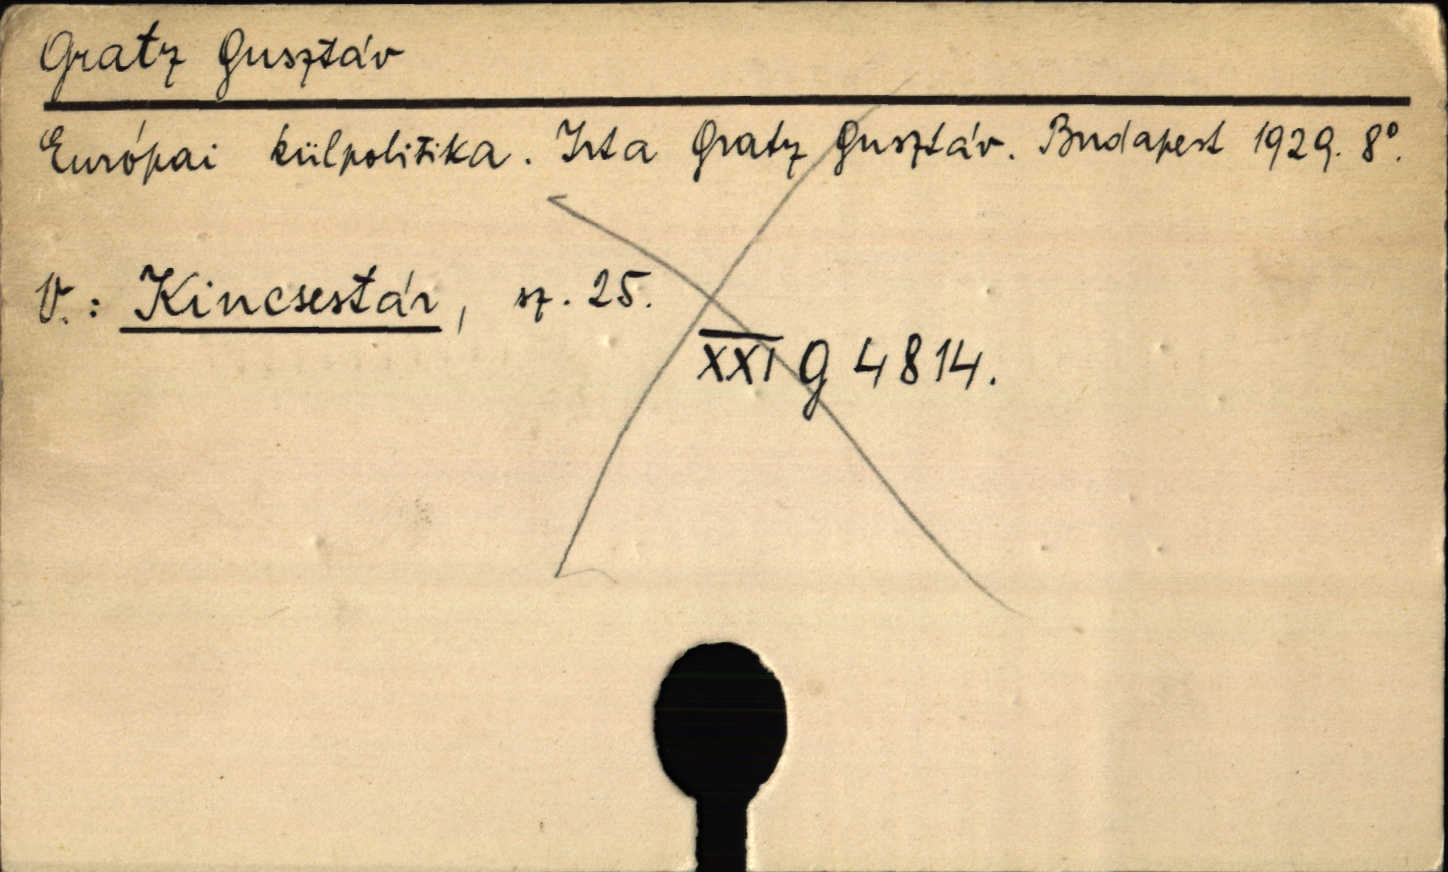 Gratz Gusztáv
Európai külpolitika. Irta Gratz Gusztáv. Budapest 1929. 8°.
V.: Kincsestár, sz. 25.
XXI G 4814.